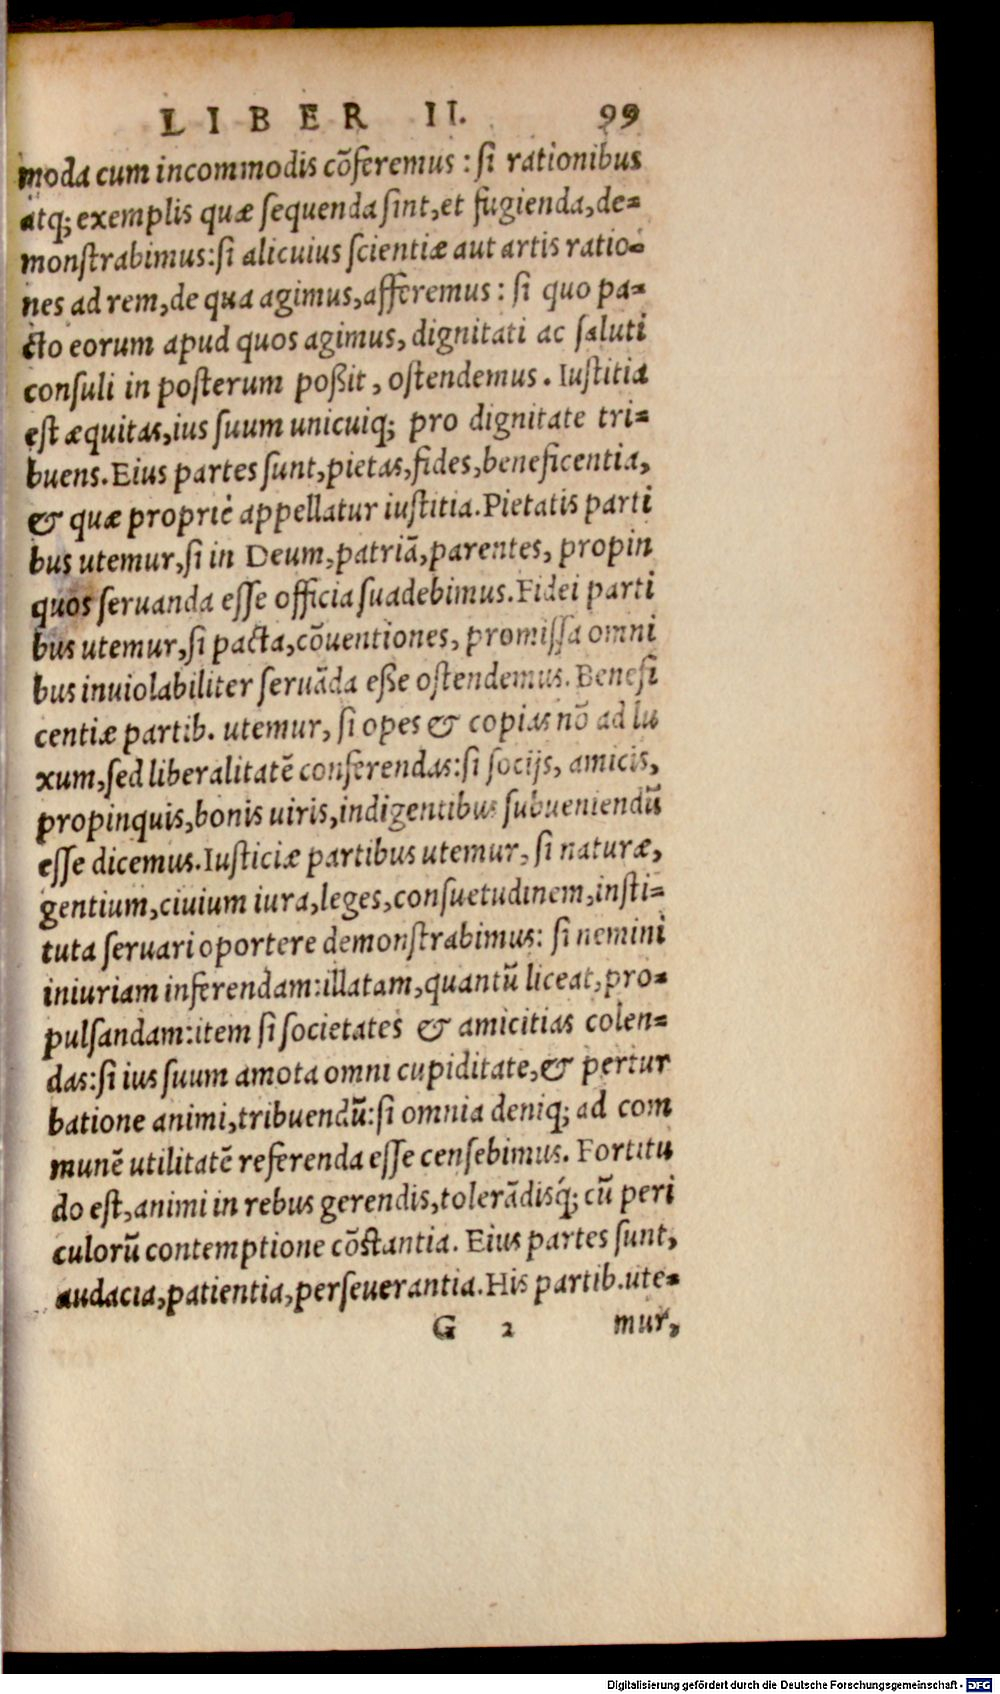 LIBER II. 99
moda cum incommodis cõferemus : ſi rationibus
atq; exemplis quæ ſequenda ſint, et fugienda, de=
monſtrabimus: ſi alicuius ſcientiæ aut artis ratio=
nes ad rem, de qua agimus, afferemus : ſi quo pa=
cto eorum apud quos agimus, dignitati ac ſaluti
conſuli in poſterum poßit, oſtendemus. Iuſtitia
eſt æquitas, ius ſuum unicuiq; pro dignitate tri=
buens. Eius partes ſunt, pietas, fides, beneficentia,
& quæ propriè appellatur iuſtitia. Pietatis parti
bus utemur, ſi in Deum, patriã, parentes, propin
quos ſeruanda eſſe officia ſuadebimus. Fidei parti
bus utemur, ſi pacta, cõuentiones, promiſſa omni
bus inuiolabiliter ſeruãda eße oſtendemus. Benefi
centiæ partib. utemur, ſi opes & copias nõ ad lu
xum, ſed liberalitatẽ conferendas: ſi ſocijs, amicis,
propinquis, bonis uiris, indigentibus ſubueniendũ
eſſe dicemus. Iuſticiæ partibus utemur, ſi naturæ,
gentium, ciuium iura, leges, conſuetudinem, inſti=
tuta ſeruari oportere demonſtrabimus: ſi nemini
iniuriam inferendam: illatam, quantũ liceat, pro=
pulſandam: item ſi ſocietates & amicitias colen=
das: ſi ius ſuum amota omni cupiditate, & pertur
batione animi, tribuendũ: ſi omnia deniq; ad com
munẽ utilitatẽ referenda eſſe cenſebimus. Fortitu
do eſt, animi in rebus gerendis, tolerãdisq́; cũ peri
culorũ contemptione cõſtantia. Eius partes ſunt,
audacia, patientia, perſeuerantia. His partib. ute=
G 2 mur,
Digitalisierung gefördert durch die Deutsche Forschungsgemeinschaft - DFG